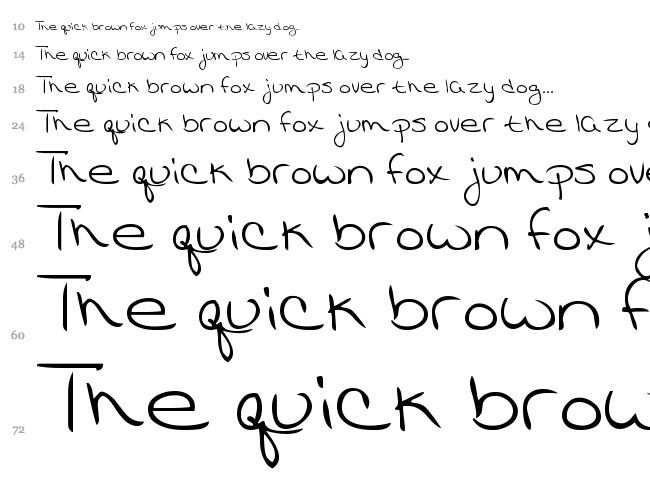 10 The quick brown fox jumps over the lazy dog...
14 The quick brown fox jumps over the lazy dog...
18 The quick brown fox jumps over the lazy dog...
24 The quick brown fox jumps over the lazy
36 The quick brown fox jumps ove
48 The quick brown fox j
60 The quick brown f
72 The quick brow